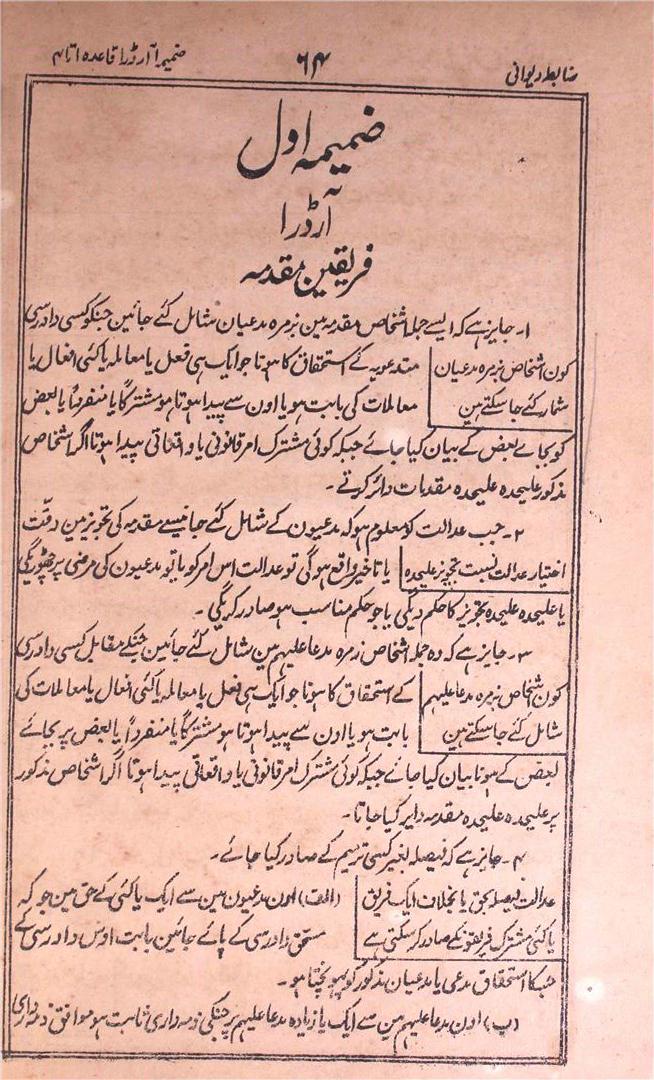 ضابط دیوانی
۶۴
ضمیمہ ا آرڈر ا قاعدہ ا تا ۴
ضمیمہ اول
آرڈر ا
فریقین مقدمہ
۱۔ جایز ہے کہ ایسے جملہ اشخاص مقدمہ مین بزمرہ مدعیان شامل کئے جائین جنکو کسی دادرسی
کون اشخاص بزمرہ مدعیان
شمار کئے جا سکتے ہین
متدعویہ کے استحقاق کا ہونا جو ایک ہی فعل یا معاملہ یا کئی افعال یا
معاملات کی بابت ہو یا اون سے پیدا ہوتا ہو مشترکاً یا منفرداً یا بعض
کو بجاے بعض کے بیان کیا جائے جبکہ کوئی مشترک امر قانونی یا واقعاتی پیدا ہوتا اگر اشخاص
مذکور علیحدہ علیحدہ مقدمات دائر کرتے۔
۲۔ جب عدالت کو معلوم ہو کہ مدعیون کے شامل کئے جانیسے مقدمہ کی تجویز مین دقت
اختیار عدالت نسبت تجویز علیحدہ
یا تاخیر واقع ہو گی تو عدالت اس امر کو یا تو مدعیون کی مرضی پر چھوڑیگی
یا علیحدہ علیحدہ تجویز کا حکم دیگی یا جو حکم مناسب ہو صادر کریگی۔
۳۔ جایز ہے کہ وہ جملہ اشخاص زمرہ مدعا علیہم مین شامل کئے جائین جنکے مقابل کسی دادرسی
کون اشخاص بزمرہ مدعا علیہم
شامل کئے جا سکتے ہین
کے استحقاق کا ہونا جو ایک ہی فعل یا معاملہ یا کئی افعال یا معاملات کی
بابت ہو یا اون سے پیدا ہوتا ہو مشترکاً یا منفرداً یا بعض پر بجائے
بعض کے ہونا بیان کیا جائے جبکہ کوئی مشترک امر قانونی یا واقعاتی پیدا ہوتا اگر اشخاص مذکور
پر علیحدہ علیحدہ مقدمہ دایر کیا جاتا۔
۴۔ جایز ہے کہ فیصلہ بغیر کسی ترمیم کے صادر کیا جائے۔
عدالت فیصلہ بحق یا بخلاف ایک فریق
یا کئی مشترک فریقونکے صادر کر سکتی ہے
(الف) اون مدعیون مین سے ایک یا کئی کے حق مین جو کہ
مستحق دادرسی کے پائے جائین بابت اوس دادرسی کے
جسکا استحقاق مدعی یا مدعیان مذکور کو پہونچتا ہو۔
(ب) اون مدعا علیہم مین سے ایک یا زیادہ مدعا علیہم پر جنکی ذمہ داری ثابت ہو موافق ذمہ داری